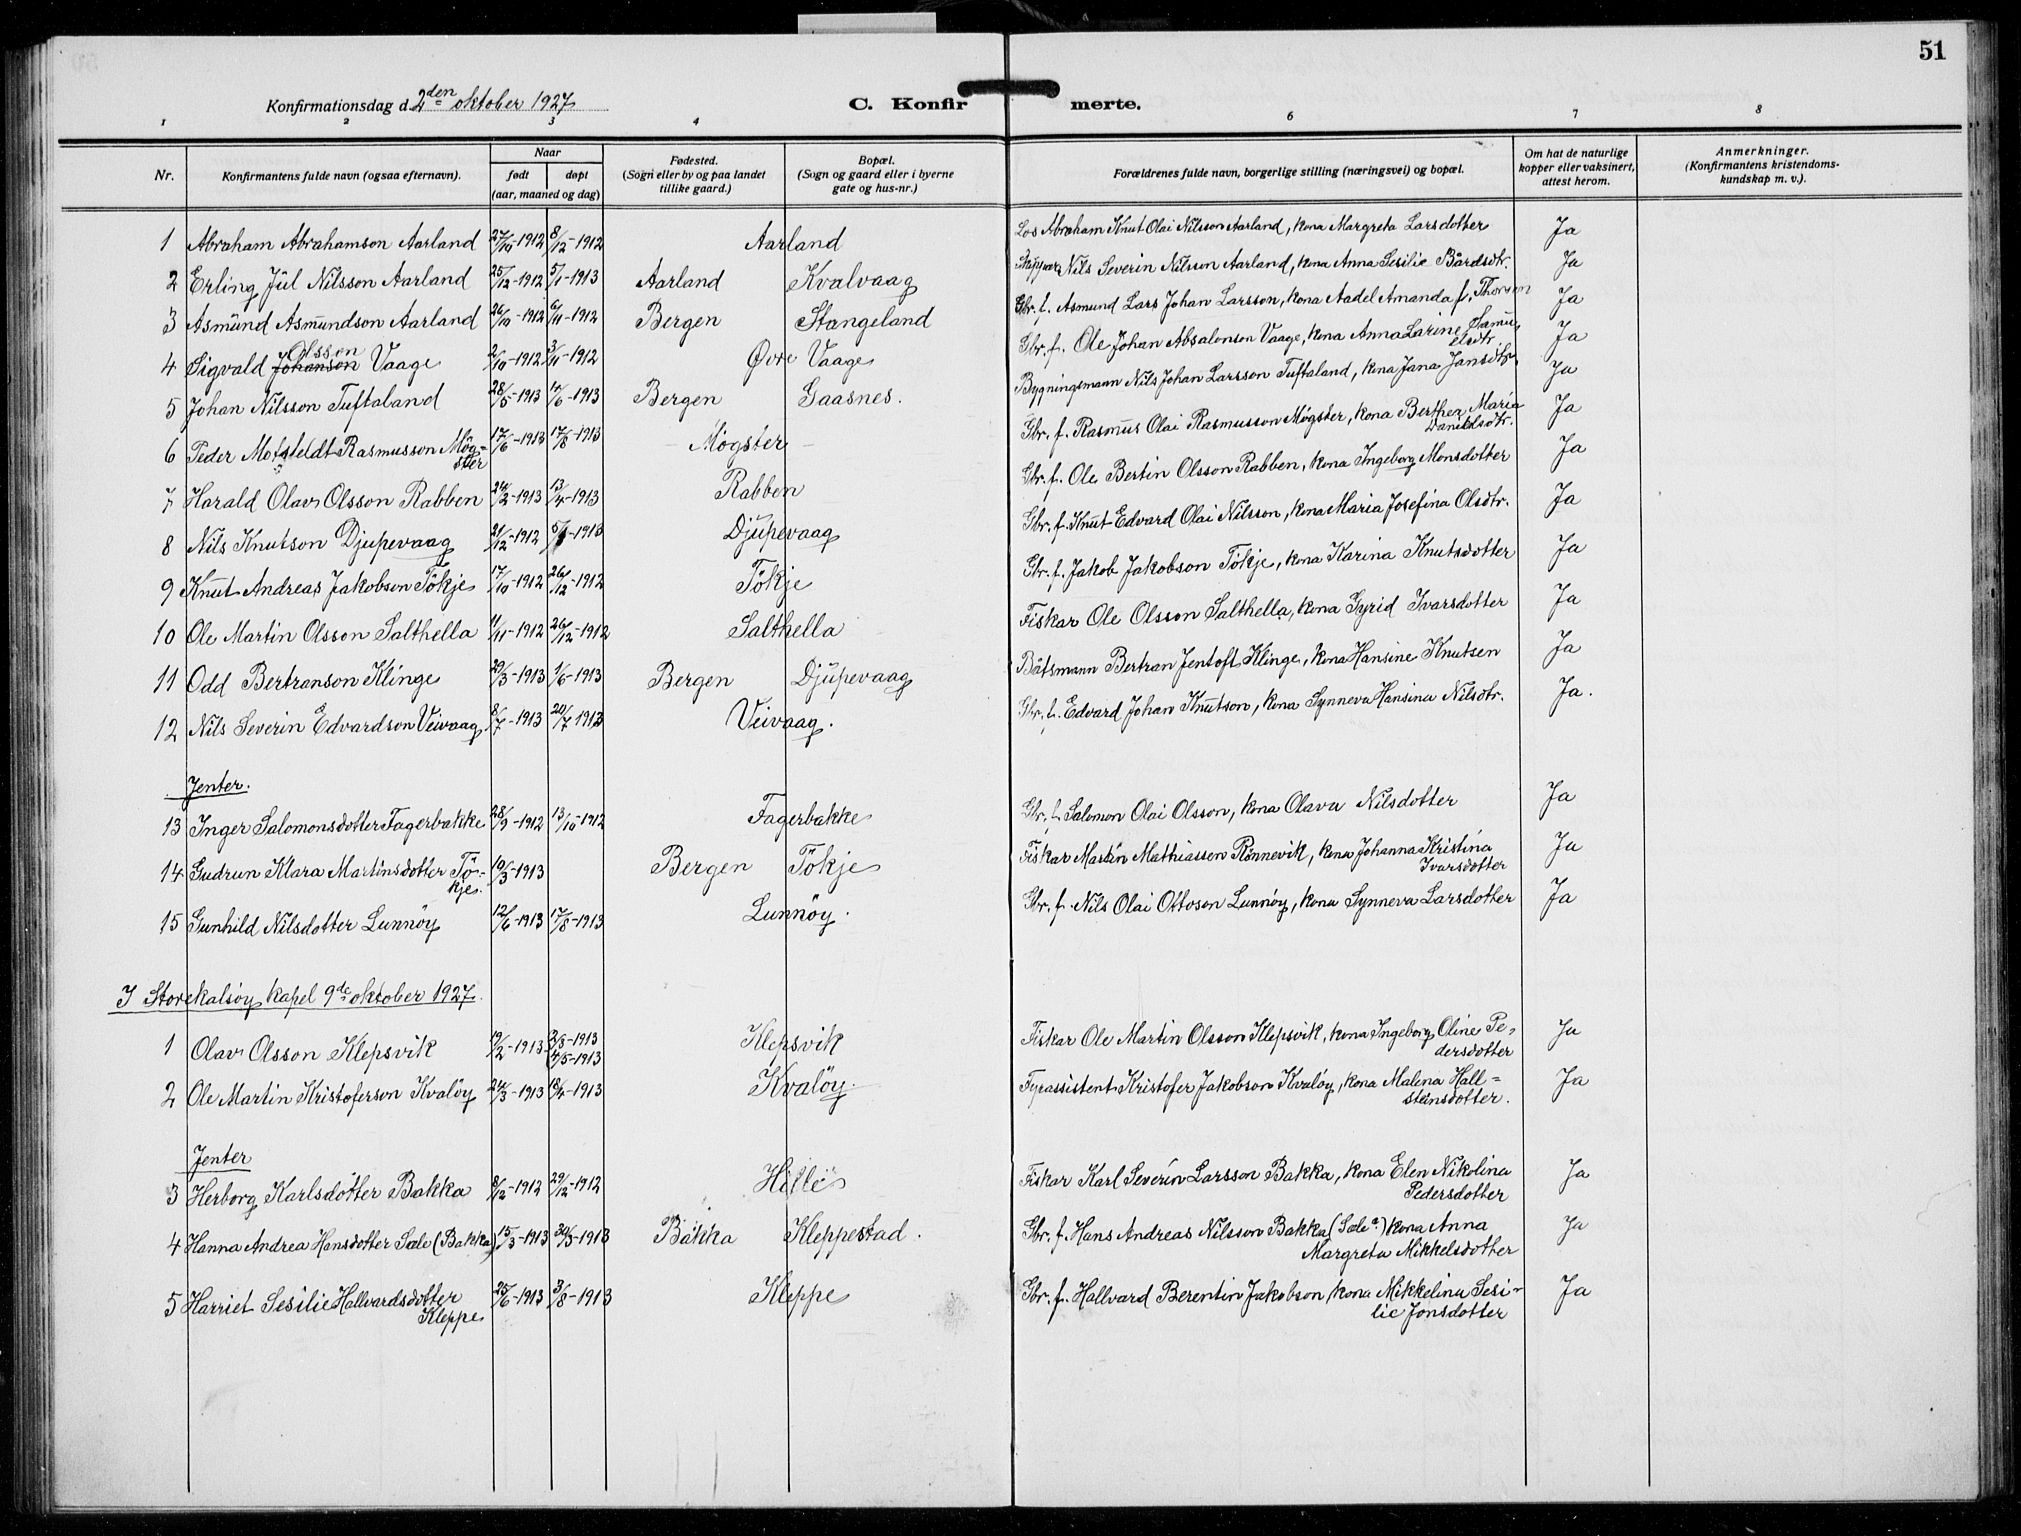 51
Konfirmationsdag d. 2den oktober 1927
C. Konfirmerte.
1 2 3 4 6 7 8
Nr. Konfirmantens fulde navn (ogsaa efternavn). Naar født døpt (aar, maaned og dag) Fødested. (Sogn eller by og paa landet tillike gaard.) Bopæl. (Sogn og gaard eller i byerne gate og hus-nr.) Forældrenes fulde navn, borgerlige stilling (næringsvei) og bopæl. Om hat de naturlige kopper eller vaksinert, attest herom. Anmerkninger. (Konfirmantens kristendomskundskap m. v.).
1 Abraham Abrahamson Aarland 27/10-1912 8/12-1912 Aarland Los Abraham Knut Olai Nilsson Aarland, kona Margreta Larsdotter Ja
2 Erling Jül Nilsson Aarland 25/12-1912 5/1-1913 Aarland Kvalvaag Skipper Nils Severin Nilsson Aarland, kona Anna Sesilie Bårdsdtr. Ja
3 Asmünd Asmundson Aarland 26/10-1912 6/11-1912 Bergen Stangeland Gbr. f. Asmund Lars Johan Larsson, kona Aadel Amanda f. Thorsen Ja
4 Sigvald Johanson Olsson Vaage 2/10-1912 3/11-1912 Øvre Vaage Gbr. f. Ole Johan Absalonson Vaage, kona Anna Larine Samuelsdtr Ja
5 Johan Nilsson Tuftaland 28/5-1913 4/6-1913 Bergen Gaasnes. Bygningsmann Nils Johan Larsson Tuftaland, kona Jana Jansdtr. Ja
6 Peder Motsfeldt Rasmusson Møgster 17/6-1913 17/8-1913 Møgster Gbr. f. Rasmus Olai Rasmusson Møgster, kona Berthea Maria Danieldsdtr. Ja
7 Harald Olav Olsson Rabben 24/2-1913 13/4-1913 Rabben Gbr. f. Ole Bertin Olsson Rabben, kona Ingeborg Monsdotter Ja
8 Nils Knutson Djupevaag 21/12-1912 5/1-1913 Djüpevaag Gbr. f. Knut Edvard Olai Nilsson, kona Maria Josefina Olsdtr. Ja
9 Knut Andreas Jakobson Tökje 17/10-1912 26/12-1912 Tökje Gbr. f. Jakob Jakobson Tökje, kona Karina Knutsdotter Ja
10 Ole Martin Olsson Salthella 11/11-1912 26/12-1912 Salthella Fiskar Ole Olsson Salthella, kona Gyrid Ivarsdotter Ja
11 Odd Bertranson Klinge 29/3-1913 1/6-1913 Bergen Djüpevaag Båtsmann Bertran Jentoft Klinge, kona Hansine Knutsen Ja
12 Nils Severin Edvardson Veivaag 8/7-1913 20/7-1913 Veivaag. Gbr. f. Edvard Johan Knutson, kona Synneva Hansina Nilsdtr. Ja.
Jenter.
13 Inger Salomonsdotter Fagerbakke 28/9-1912 13/10-1912 Fagerbakke Gbr. f. Salomon Olai Olsson, kona Olava Nilsdotter Ja
14 Gudrun Klara Martinsdotter Tökje 10/3-1913 Bergen Tökje Fiskar Martin Mathiassen Rönnevik, kona Johanna Kristina Ivarsdotter Ja
15 Gunhild Nilsdotter Lunnöy 12/6-1913 17/8-1913 Lunnöy. Gbr. f. Nils Olai Ottoson Lunnöy, kona Synneva Larsdotter Ja
I Storekalsöy kapel 9de oktober 1927.
1 Olav Olsson Klepsvik 19/2-1913 2/3-1913 (4/5-1913 Klepsvik Fiskar Ole Martin Olsson Klepsvik, kona Ingeborg Oline Pedersdotter Ja
2 Ole Martin Kristoferson Kvalöy 24/3-1913 18/4-1913 Kvalöy. Fyrassistent Kristofer Jakobson Kvalöy, kona Malena Hallsteinsdotter. Ja
Jenter
3 Herborg Karlsdotter Bakka 8/12-1912 29/12-1912 Fiskar Karl Severin Larsson Bakka, kona Elen Nikolina Pedersdotter Ja
4 Hanna Andrea Hansdotter Sæle (Bakka) 15/3-1913 30/3-1913 Bakka Kleppestad. Gbr. f. Hans Andreas Nilsson Bakka (Sæle) kona Anna Margreta Mikkelsdotter Ja
5 Harriet Sesilie Hallvardsdotter Kleppe 25/6-1913 3/8-1913 Kleppe Gbr. f. Hallvard Berentin Jakobson, kona Mikkelina Sesilie Jonsdotter Ja